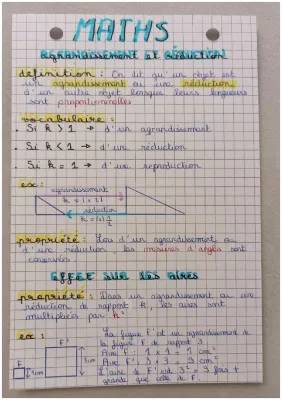 MATHS
AGRANDISSEMENT ET RÉDUCTION
définition : On dit qu'un objet est
un agrandissement ou une réduction
d'un autre objet lorsque leurs longueurs
sont proportionnelles
vocabulaire :
. Si k > 1 → d'un agrandissement
. Si k < 1 → d'une réduction
. Si k = 1 → d'une reproduction
ex :
agrandissement
réduction
propriété : Lors d'un agrandissement ou
d'une réduction, les mesures d'angles sont
conservées
EFFET SUR LES AIRES
propriété : Dans un agrandissement ou une
réduction de rapport k, les aires sont
multipliées par k²
ex :
La figure F' est un agrandissement de
la figure F de rapport 3.
Aire F : 1 x 1 = 1 cm²
Aire F' : 3 x 3 = 9 cm²
L'aire de F' est 3² = 9 fois +
grande que celle de F.
F'
3cm
F
1cm